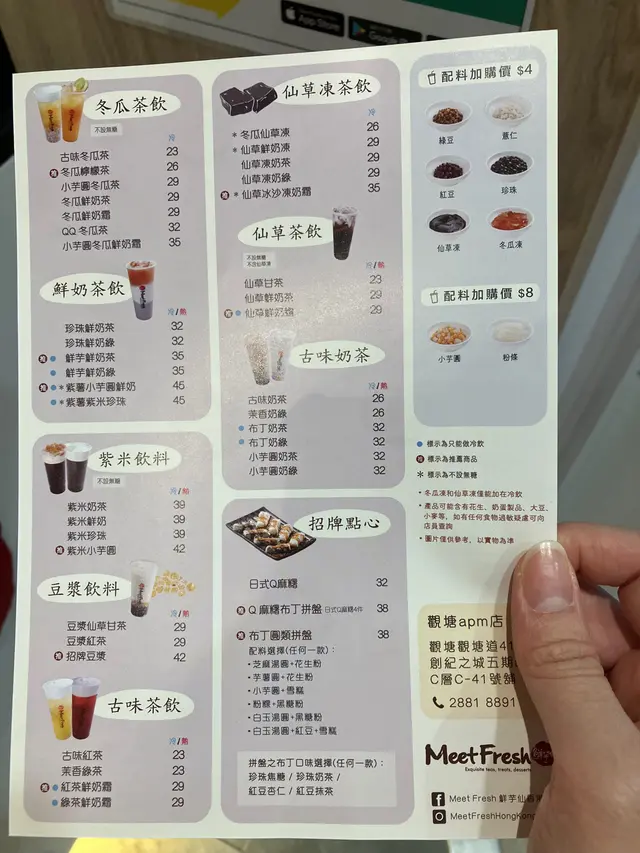 App Store
冬瓜茶飲
不設無糖
冷
古味冬瓜茶 23
推 冬瓜檸檬茶 26
小芋圓冬瓜茶 29
冬瓜鮮奶茶 29
冬瓜鮮奶霜 29
QQ 冬瓜茶 32
小芋圓冬瓜鮮奶霜 35
鮮奶茶飲
冷/熱
珍珠鮮奶茶 32
珍珠鮮奶綠 32
推 鮮芋鮮奶茶 35
鮮芋鮮奶綠 35
推 *紫薯小芋圓鮮奶 45
*紫薯紫米珍珠 45
紫米飲料
不設無糖
冷/熱
紫米奶茶 39
紫米鮮奶 39
紫米珍珠 39
推 紫米小芋圓 42
豆漿飲料
冷/熱
豆漿仙草甘茶 29
豆漿紅茶 29
推 招牌豆漿 42
古味茶飲
冷/熱
古味紅茶 23
茉香綠茶 23
推 紅茶鮮奶霜 29
綠茶鮮奶霜 29
仙草凍茶飲
冷
*冬瓜仙草凍 26
*仙草鮮奶凍 29
仙草凍奶茶 29
仙草凍奶綠 29
推 *仙草冰沙凍奶霜 35
仙草茶飲
不設無糖
不含仙草凍
冷/熱
仙草甘茶 23
仙草鮮奶茶 29
推 仙草鮮奶霜 29
古味奶茶
冷/熱
古味奶茶 26
茉香奶綠 26
布丁奶茶 32
布丁奶綠 32
小芋圓奶茶 32
小芋圓奶綠 32
招牌點心
日式Q麻糬 32
推 Q 麻糬布丁拼盤 日式Q麻糬4件 38
推 布丁圓類拼盤 38
配料選擇(任何一款)：
•芝麻湯圓+花生粉
•芋薯圓+花生粉
•小芋圓+雪糕
•粉粿+黑糖粉
•白玉湯圓+黑糖粉
•白玉湯圓+紅豆+雪糕
拼盤之布丁口味選擇(任何一款)：
珍珠焦糖 / 珍珠奶茶 /
紅豆杏仁 / 紅豆抹茶
配料加購價 $4
綠豆 薏仁
紅豆 珍珠
仙草凍 冬瓜凍
配料加購價 $8
小芋圓 粉條
標示為只能做冷飲
推 標示為推薦商品
* 標示為不設無糖
•冬瓜凍和仙草凍僅能加在冷飲
•產品可能含有花生、奶蛋製品、大豆、
小麥等，如有任何食物過敏疑慮可向
店員查詢
•圖片僅供參考，以實物為準
觀塘apm店
觀塘觀塘道41
創紀之城五期
C層C-41號舖
2881 8891
Meet Fresh
Exquisite teas, treats, desserts
Meet Fresh 鮮芋仙香
MeetFreshHongKong